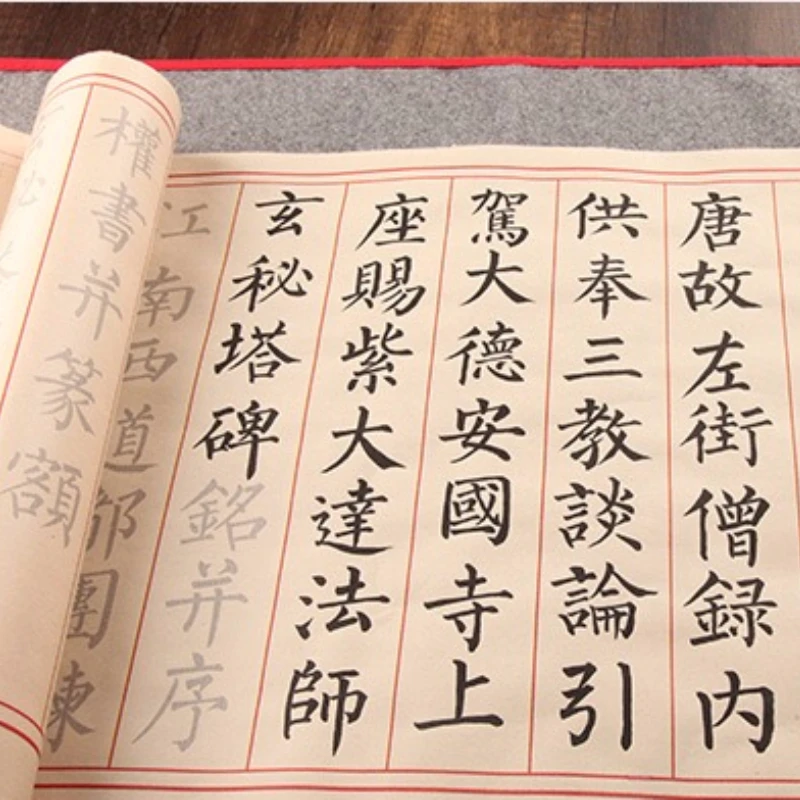 唐故左街僧録内
供奉三教談論引
駕大德安國寺上
座賜紫大達法師
玄秘塔碑銘并序
江南西道都團練
權書并篆額